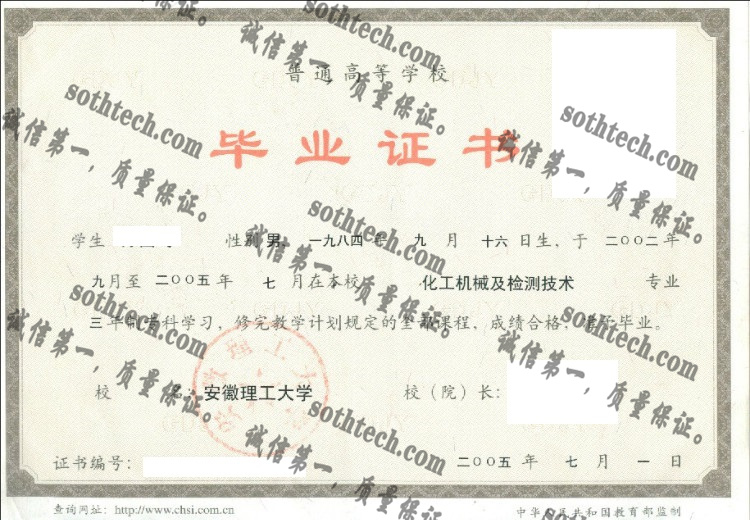 普通高等学校
毕业证书
学生 性别 男, 一九八四 年 九 月 十六 日生, 于 二〇〇二 年
九 月至 二〇〇五 年 七 月在本校 化工机械及检测技术 专业
三 年制 专科学习, 修完教学计划规定的全部课程, 成绩合格, 准予毕业。
校 安徽理工大学 校(院)长:
证书编号: 二〇〇五 年 七 月 一 日
查询网址: http://www.chsi.com.cn 中华人民共和国教育部监制
sothtech.com
诚信第一,质量保证。
sothtech.com
诚信第一,质量保证。
sothtech.com
诚信第一,质量保证。
sothtech.com
诚信第一,质量保证。
sothtech.com
诚信第一,质量保证。
sothtech.com
诚信第一,质量保证。
sothtech.com
诚信第一,质量保证。